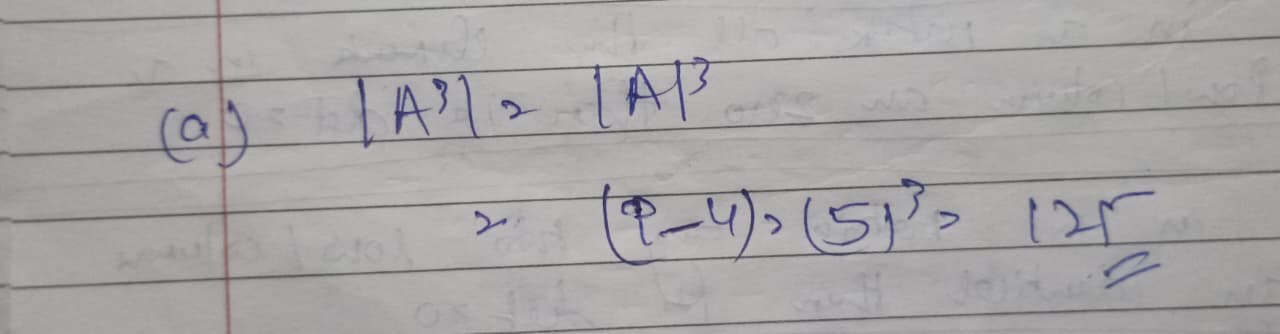 (a) |A³| = |A|³
= (9-4) = (5)³ = 125